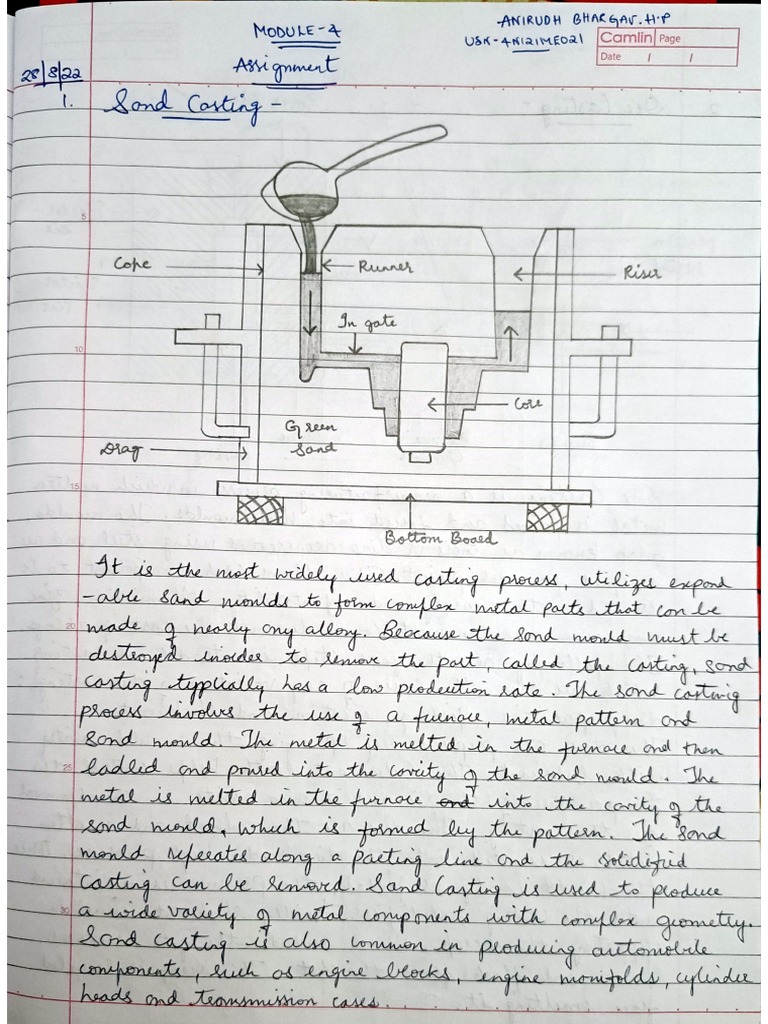 ANIRUDH BHARGAV. H.P
MODULE-4
USN-4NI21ME021
Camlin Page
Date / /
Assignment
28/8/22
1. Sand Casting -
5
Cope
Runner
Riser
In gate
10
Core
Green
Sand
Drag
15
Bottom Board
It is the most widely used casting process, utilizes expend
-able sand moulds to form complex metal parts that can be
20
made of nearly any alloy. Beocause the sand mould must be
destroyed inorder to remove the part, called the casting, sand
casting typlically has a low production rate. The sand casting
process involvs the use of a furnace, metal pattern and
sand mould. The metal is melted in the furnace and then
25
ladled and poured into the cavity of the sand mould. The
metal is melted in the furnace and into the cavity of the
sand mould, which is formed by the pattern. The sand
mould seperates along a parting line and the solidified
casting can be removed. Sand Casting is used to produce
30
a wide variety of metal components with complex geometry.
Sand casting is also common in producing automobile
components, such as engine blocks, engine manifolds, cylinder
heads and transmission cases.